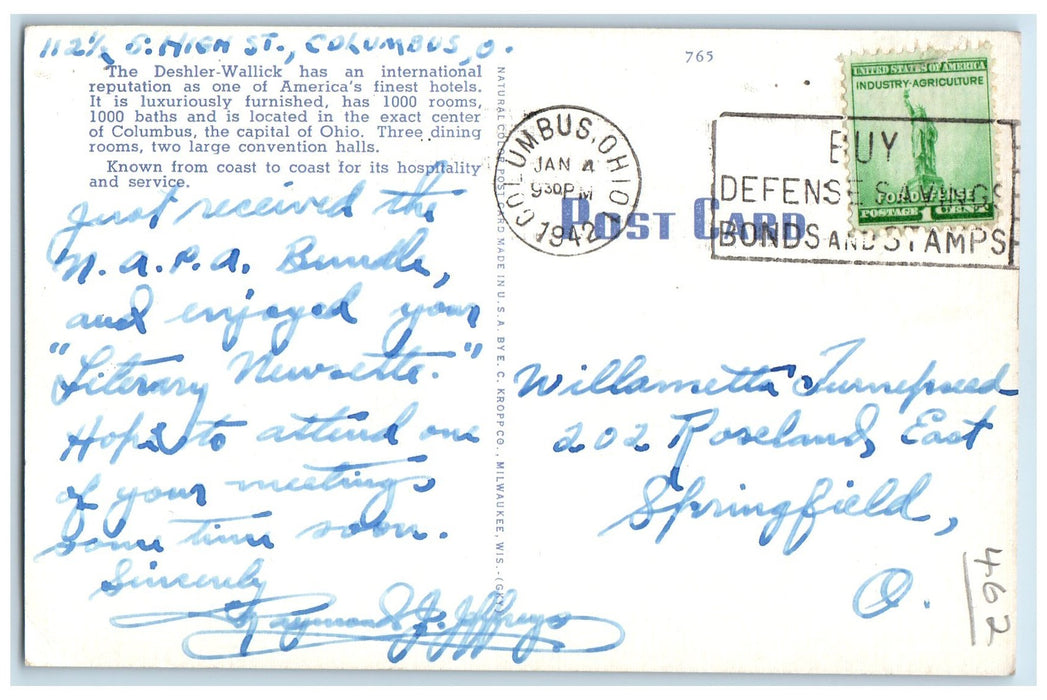 112½ S. HIGH ST., COLUMBUS, O.
The Deshler-Wallick has an international
reputation as one of America's finest hotels.
It is luxuriously furnished, has 1000 rooms,
1000 baths and is located in the exact center
of Columbus, the capital of Ohio. Three dining
rooms, two large convention halls.
Known from coast to coast for its hospitality
and service.
Just received the
N.A.P.A. Bundle,
and enjoyed your
"Literary Newsette."
Hope to attend one
of your meetings
some time soon.
Sincerely
Raymond J. Jeffreys
NATURAL COLOR POST CARD MADE IN U.S.A. BY E. C. KROPP CO., MILWAUKEE, WIS.-(GKY)
765
POST CARD
COLUMBUS, OHIO
JAN 4
930PM
1942
BUY
DEFENSE SAVINGS
BONDS AND STAMPS
UNITED STATES OF AMERICA
INDUSTRY·AGRICULTURE
FOR DEFENSE
POSTAGE 1 CENT
Willametta Turnepseed
202 Roseland, East
Springfield,
O.
462